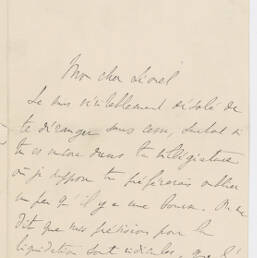 Mon cher Lionel
Je suis véritablement désolé de
te déranger sans cesse, surtout si
tu es encore dans ta villégiature
où je suppose tu préférerais oublier
un peu qu'il y a une bourse. On me
dit que mes prévisions pour la
liquidation sont ridicules,